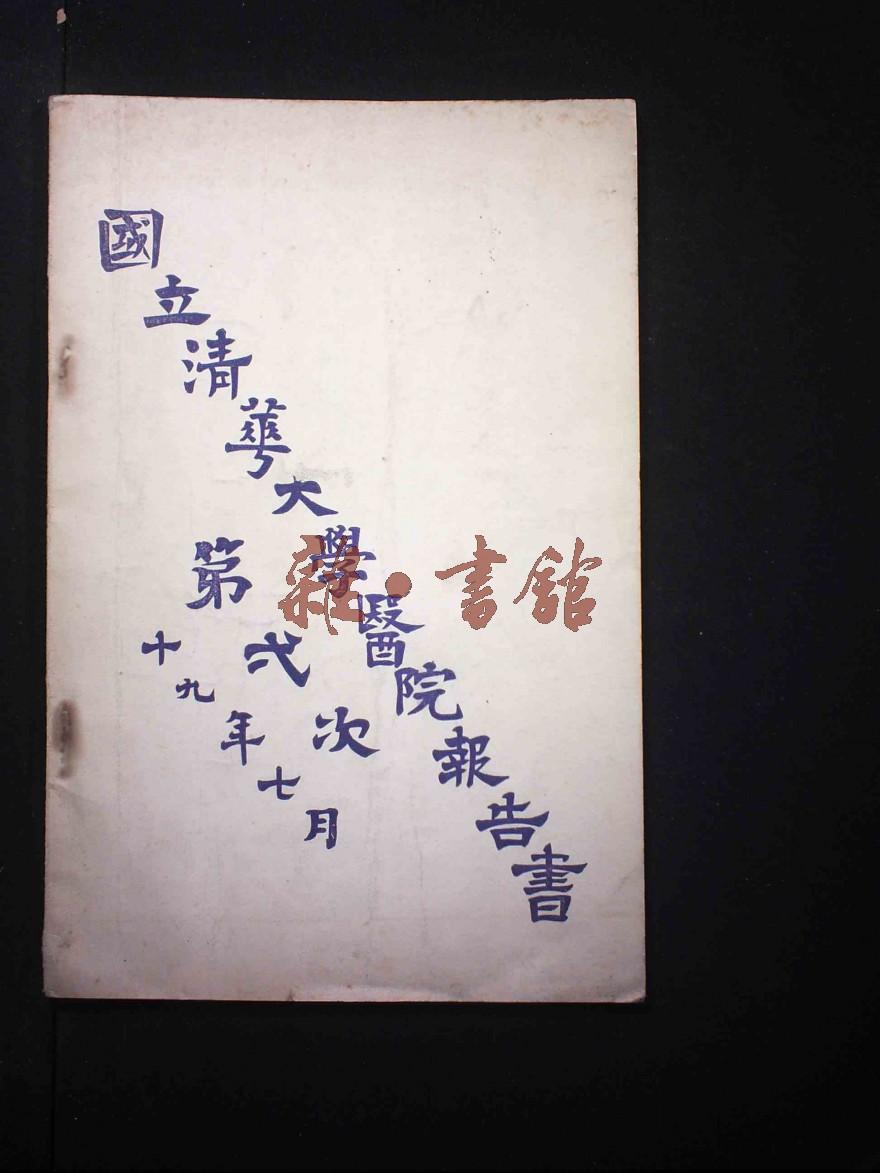 國立清華大學醫院報告書
第弍次
十九年七月
雜·書館